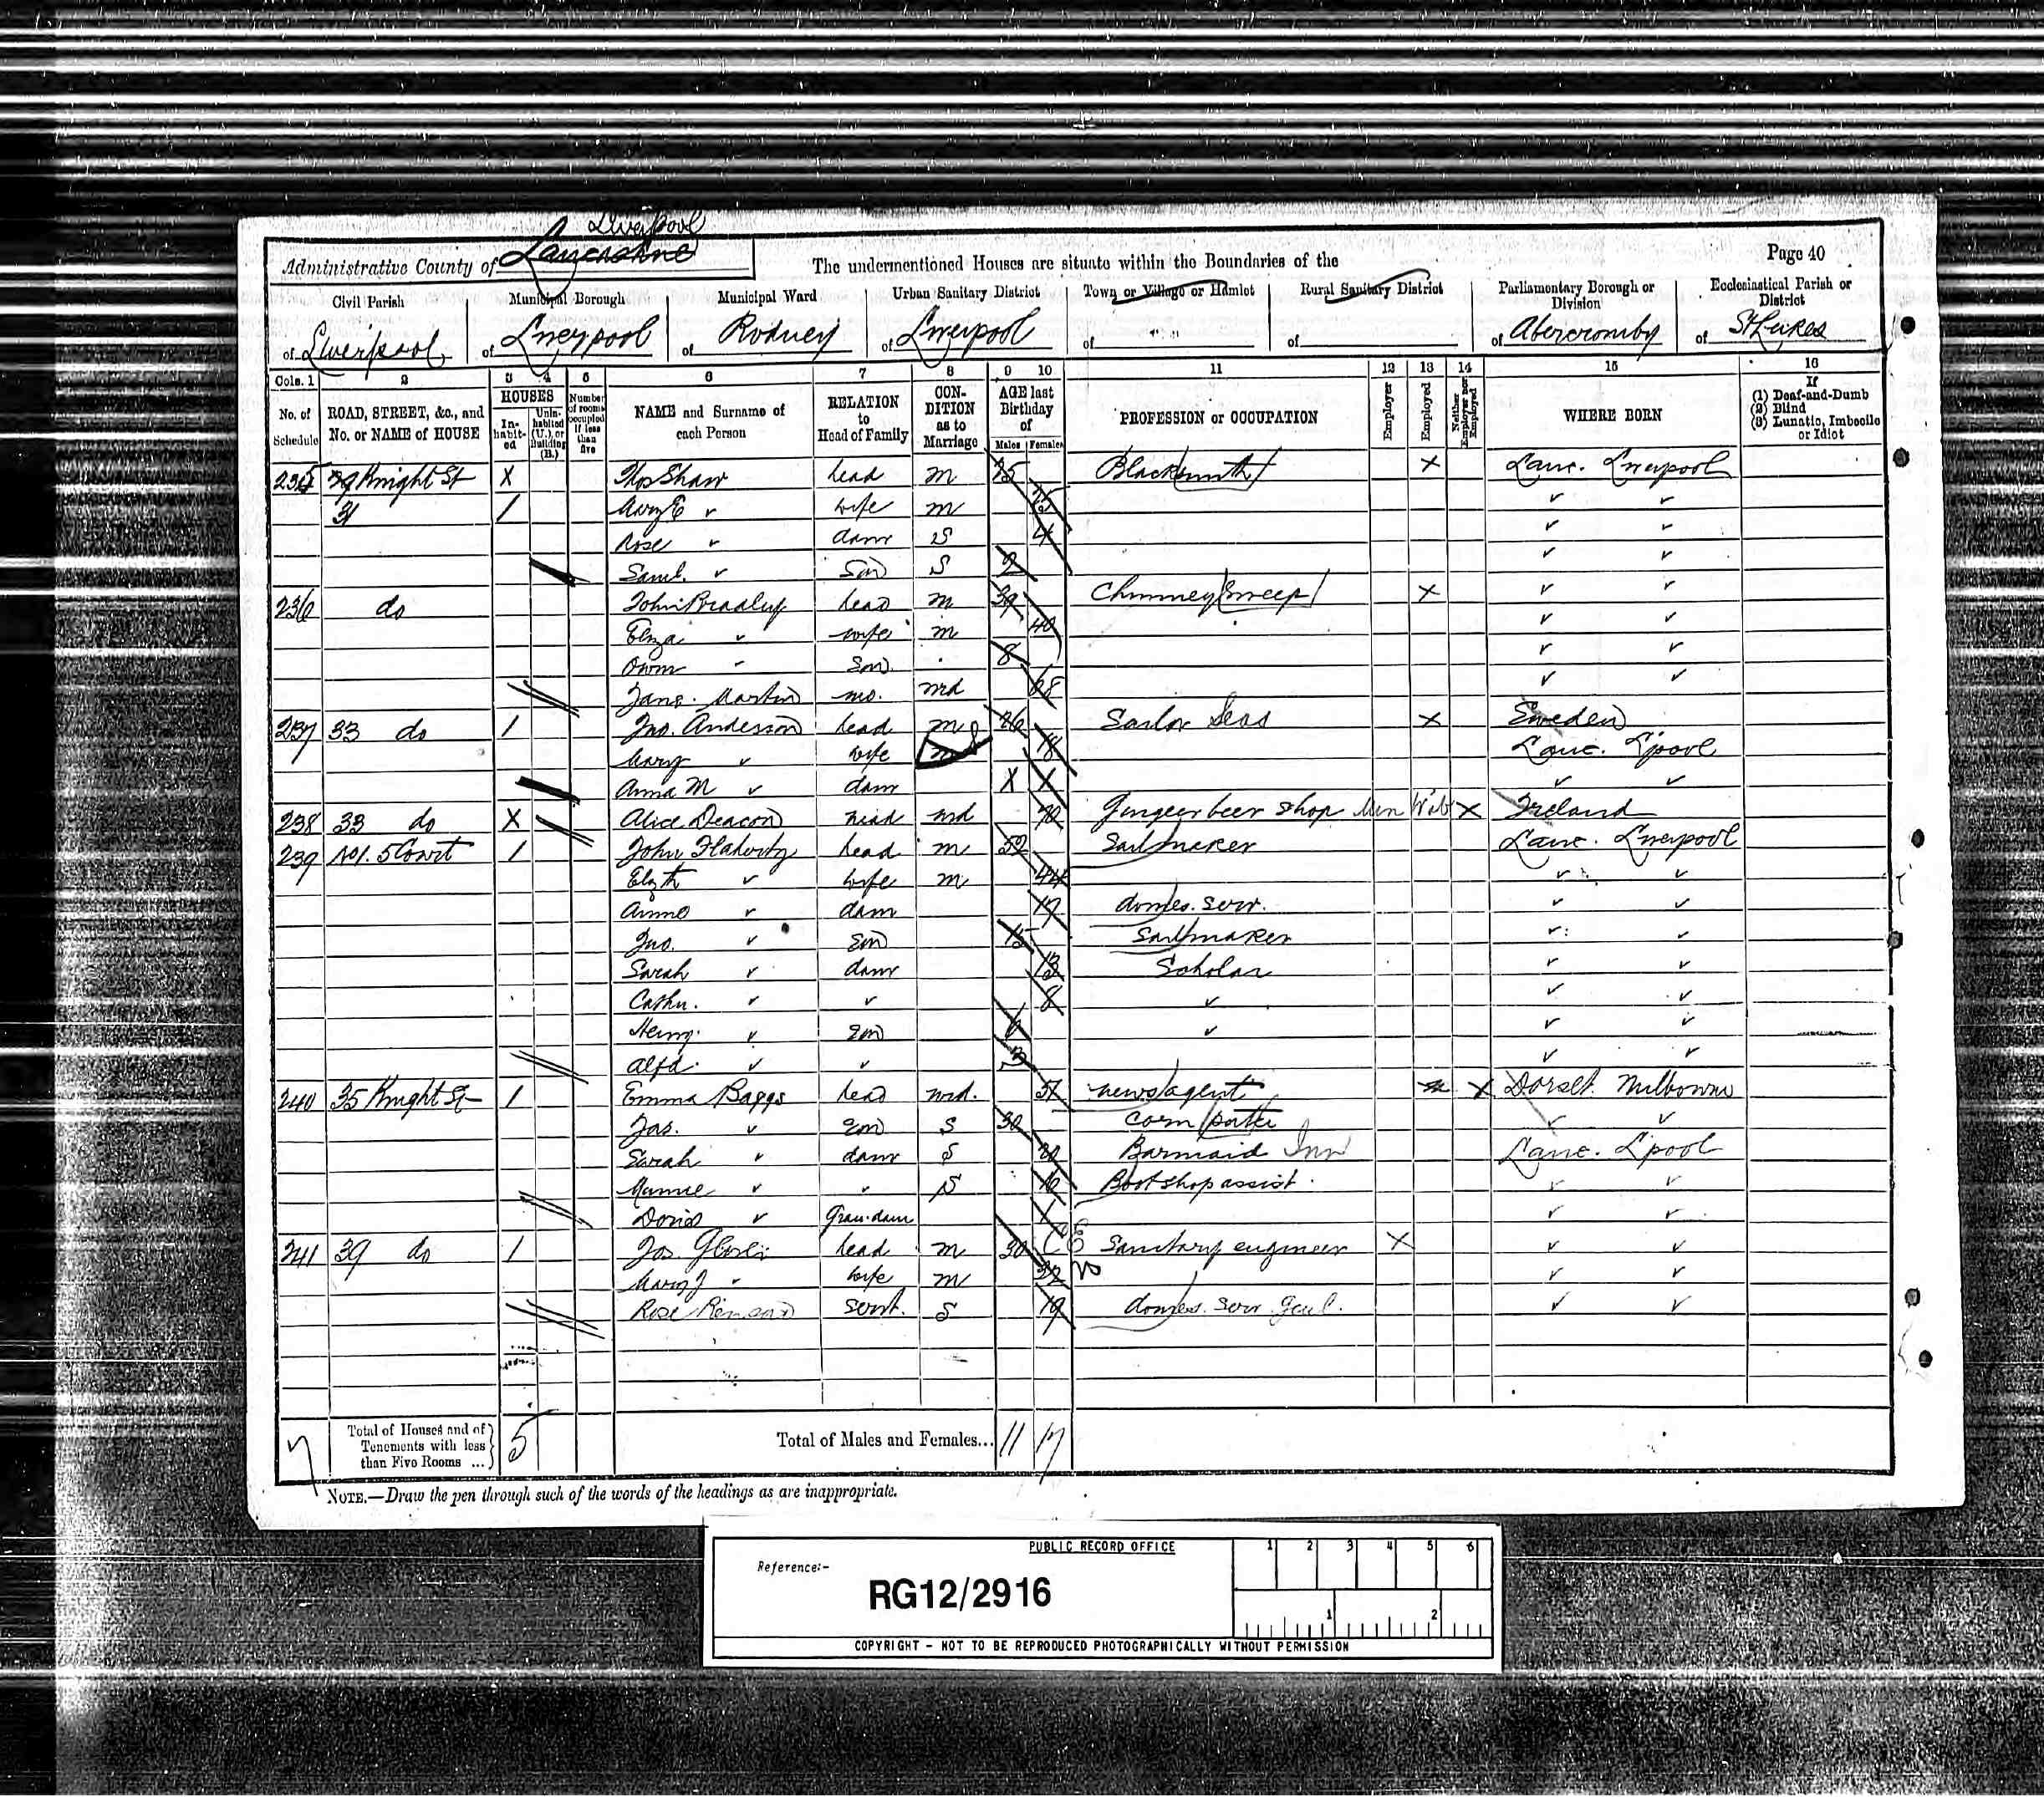 Liverpool
Administrative County of Lancashire
The undermentioned Houses are situate within the Boundaries of the
Page 40
Civil Parish
Municipal Borough
Municipal Ward
Urban Sanitary District
Town or Village or Hamlet
Rural Sanitary District
Parliamentary Borough or Division
Ecclesiastical Parish or District
of Liverpool
of Liverpool
of Rodney
of Liverpool
of
of
of Abercromby
of St Lukes
Cols. 1 2 3 4 5 6 7 8 9 10 11 12 13 14 15 16
No. of Schedule
ROAD, STREET, &c., and No. or NAME of HOUSE
HOUSES
In-habit-ed
Unin-habited (U.), or Building (B.)
Number of rooms occupied if less than five
NAME and Surname of each Person
RELATION to Head of Family
CON-DITION as to Marriage
AGE last Birthday of
Males Females
PROFESSION or OCCUPATION
Employer
Employed
Neither Employer nor Employed
WHERE BORN
If
(1) Deaf-and-Dumb
(2) Blind
(3) Lunatic, Imbecile or Idiot
235 29 Knight St X Thos Shaw head m 25 Blacksmith X Lanc. Liverpool
31 / Mary E " wife m 25 " "
Rose " daur S 4 " "
Saml. " Son S 2 " "
236 do John Bradley head m 39 Chimney Sweep X " "
Eliza " wife m 40 " "
Owen " Son 8 " "
Jane Martin mo. wd 68 " "
237 33 do / Jno. Anderson head m 26 Sailor Seas X Sweden
Mary " wife m 18 Lanc. L'pool
Anna M " daur X X " "
238 33 do X Alice Deacon head wd 70 Gingerbeer shop X Ireland
239 No 1. 5 Court / John Flaherty head m 52 Sailmaker Lanc. Liverpool
Elizth " wife m 44 " "
Annie " daur 17 domes. serv. " "
Jno. " Son 15 Sailmaker " "
Sarah " daur 13 Scholar " "
Cathn. " " 8 " " "
Henry " Son 6 " " "
Alfd. " " 3 " "
240 35 Knight St / Emma Baggs head wd. 57 newsagent X Dorset. Milborne
Jas. " Son S 30 Corn porter " "
Sarah " daur S 20 Barmaid Inn Lanc. L'pool
Minnie " " S 16 Boot shop assist. " "
Doris " Gran.daur 1 " "
241 39 do / Jos. head m 30 Sanitary engineer X " "
Mary J " wife m 32 " "
Rose servt. S 19 domes. serv. Genl. " "
7
Total of Houses and of Tenements with less than Five Rooms ...
5
Total of Males and Females...
11 17
NOTE.—Draw the pen through such of the words of the headings as are inappropriate.
PUBLIC RECORD OFFICE
1 2 3 4 5 6
Reference:-
RG12/2916
1 2
COPYRIGHT - NOT TO BE REPRODUCED PHOTOGRAPHICALLY WITHOUT PERMISSION